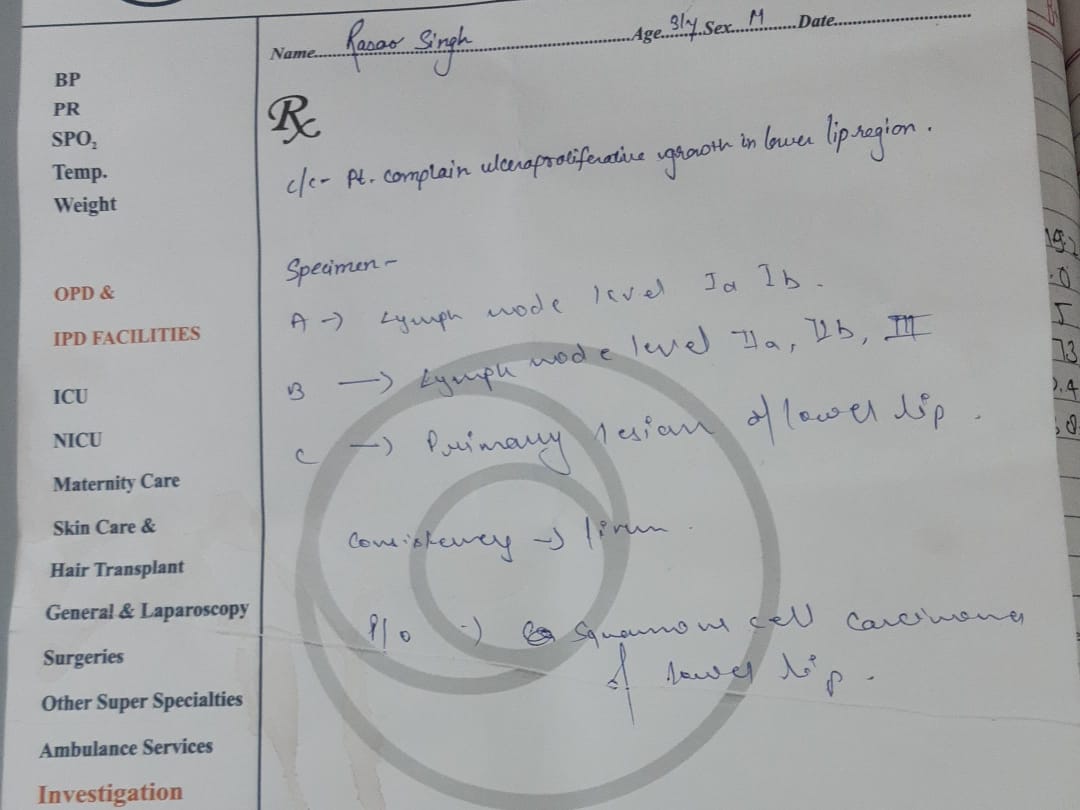 Name.....Rasao Singh.....Age..31y..Sex...M.....Date.....
BP
PR
SPO₂
Temp.
Weight
OPD &
IPD FACILITIES
ICU
NICU
Maternity Care
Skin Care &
Hair Transplant
General & Laparoscopy
Surgeries
Other Super Specialties
Ambulance Services
Investigation
Rx
c/c- Pt. complain ulceroproliferative growth in lower lip region.
Specimen -
A → Lymph node level Ia Ib.
B → Lymph node level IIa, IIb, III
C → Primary lesian of lower lip.
Consistency → firm.
P/o → Squamous cell carcinoma
of lower lip.
19.2
.0
5
73
0.4